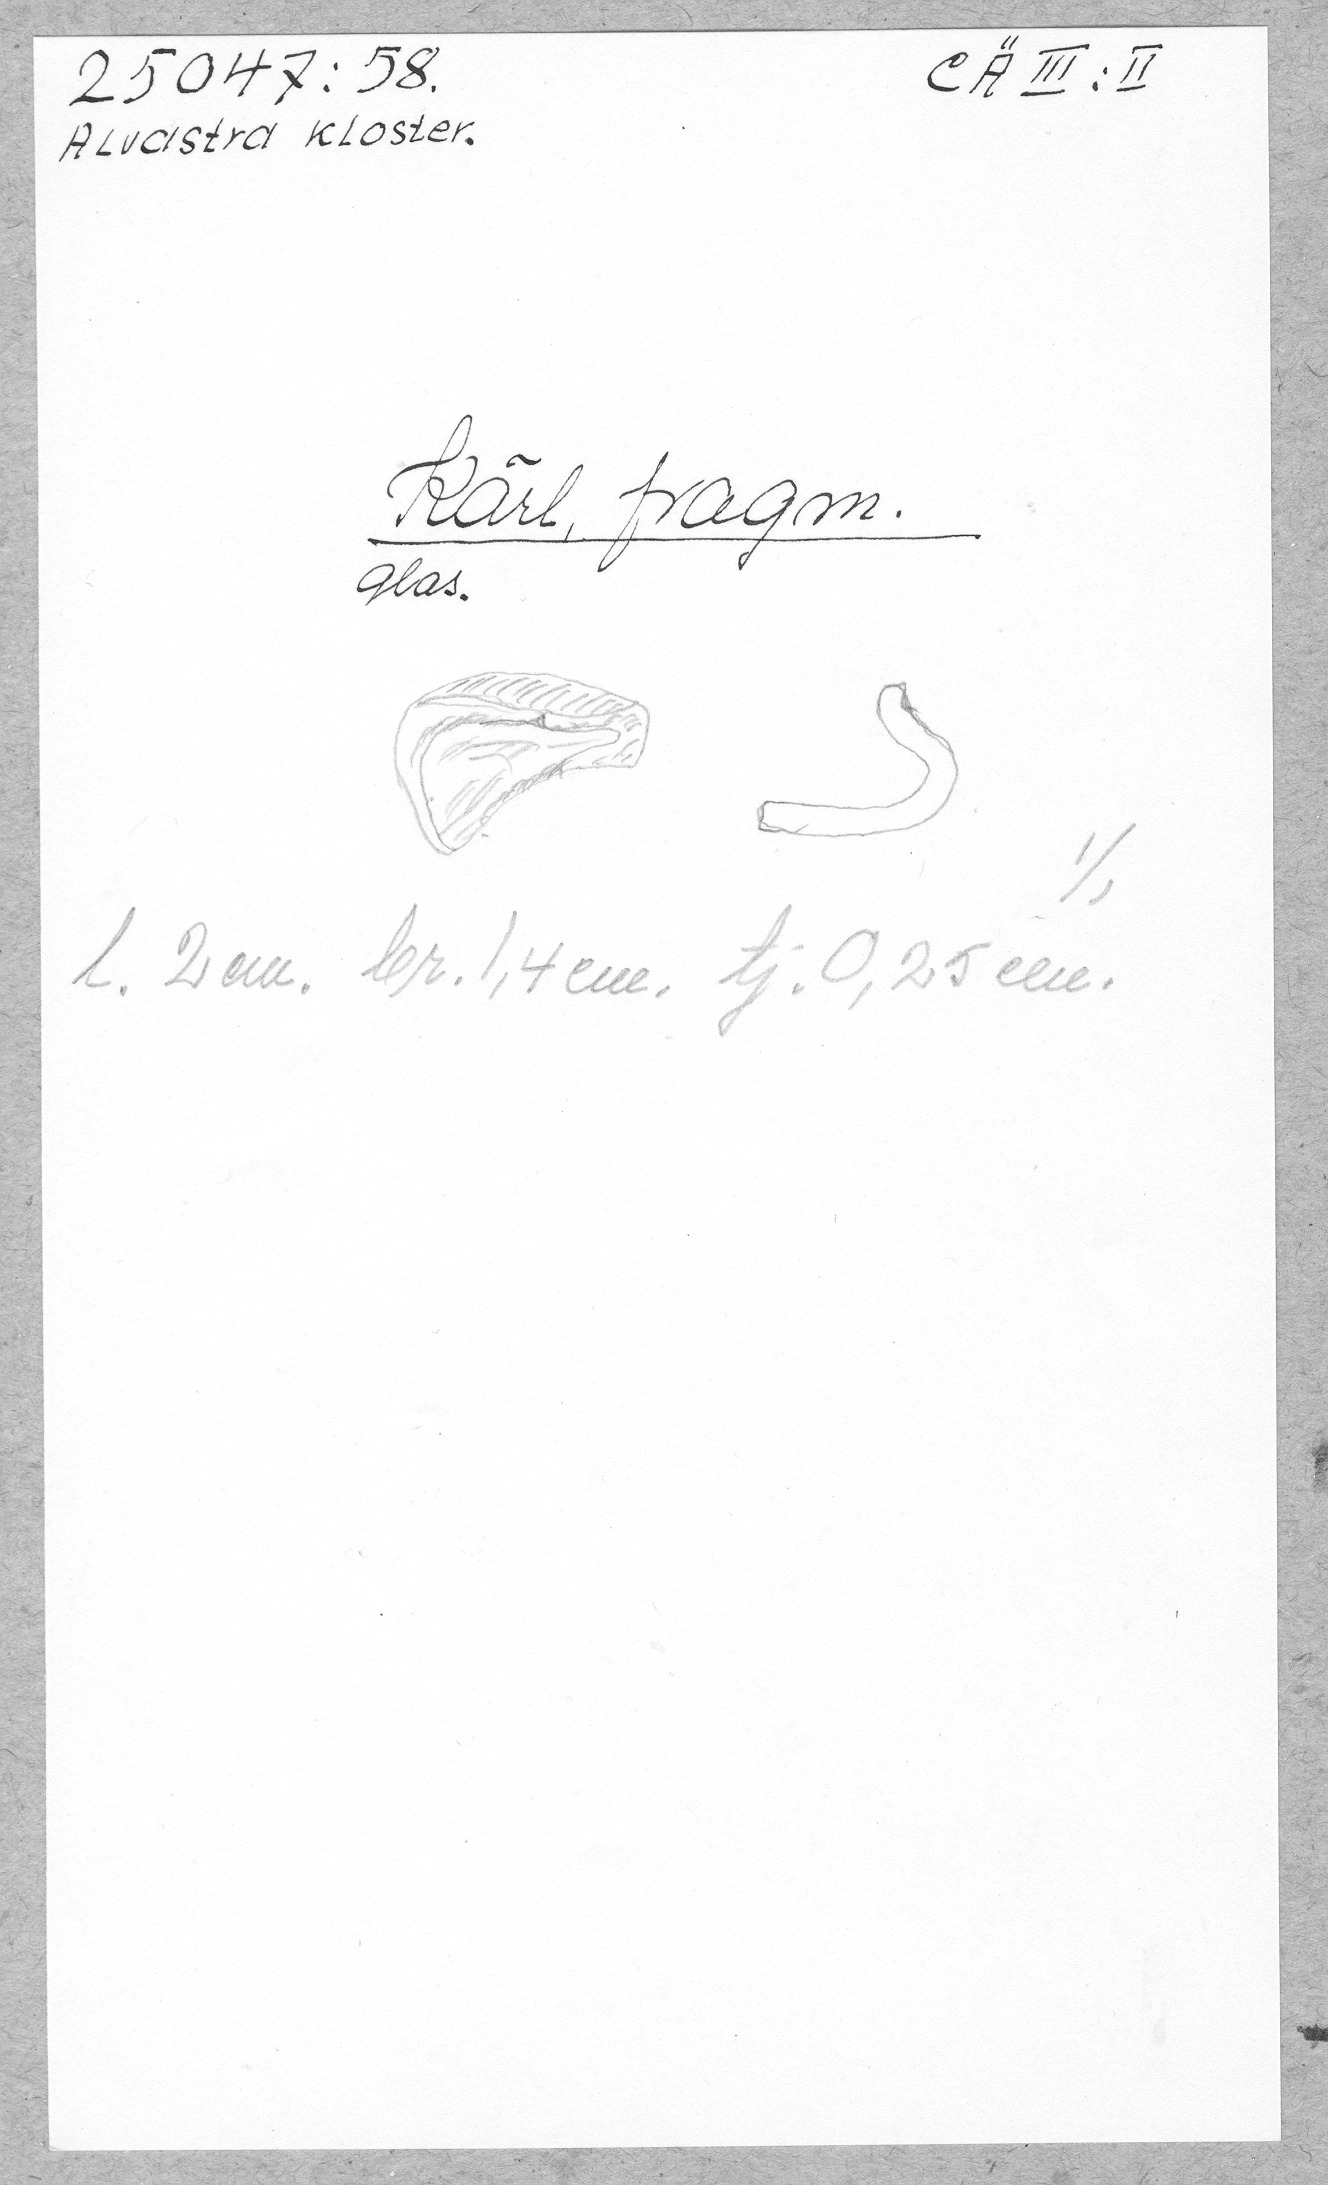 25047:58.
CÄ III:II
Alvastra kloster.
Kärl, fragm.
glas.
1/1
l. 2 cm. br. 1,4 cm. tj. 0,25 cm.